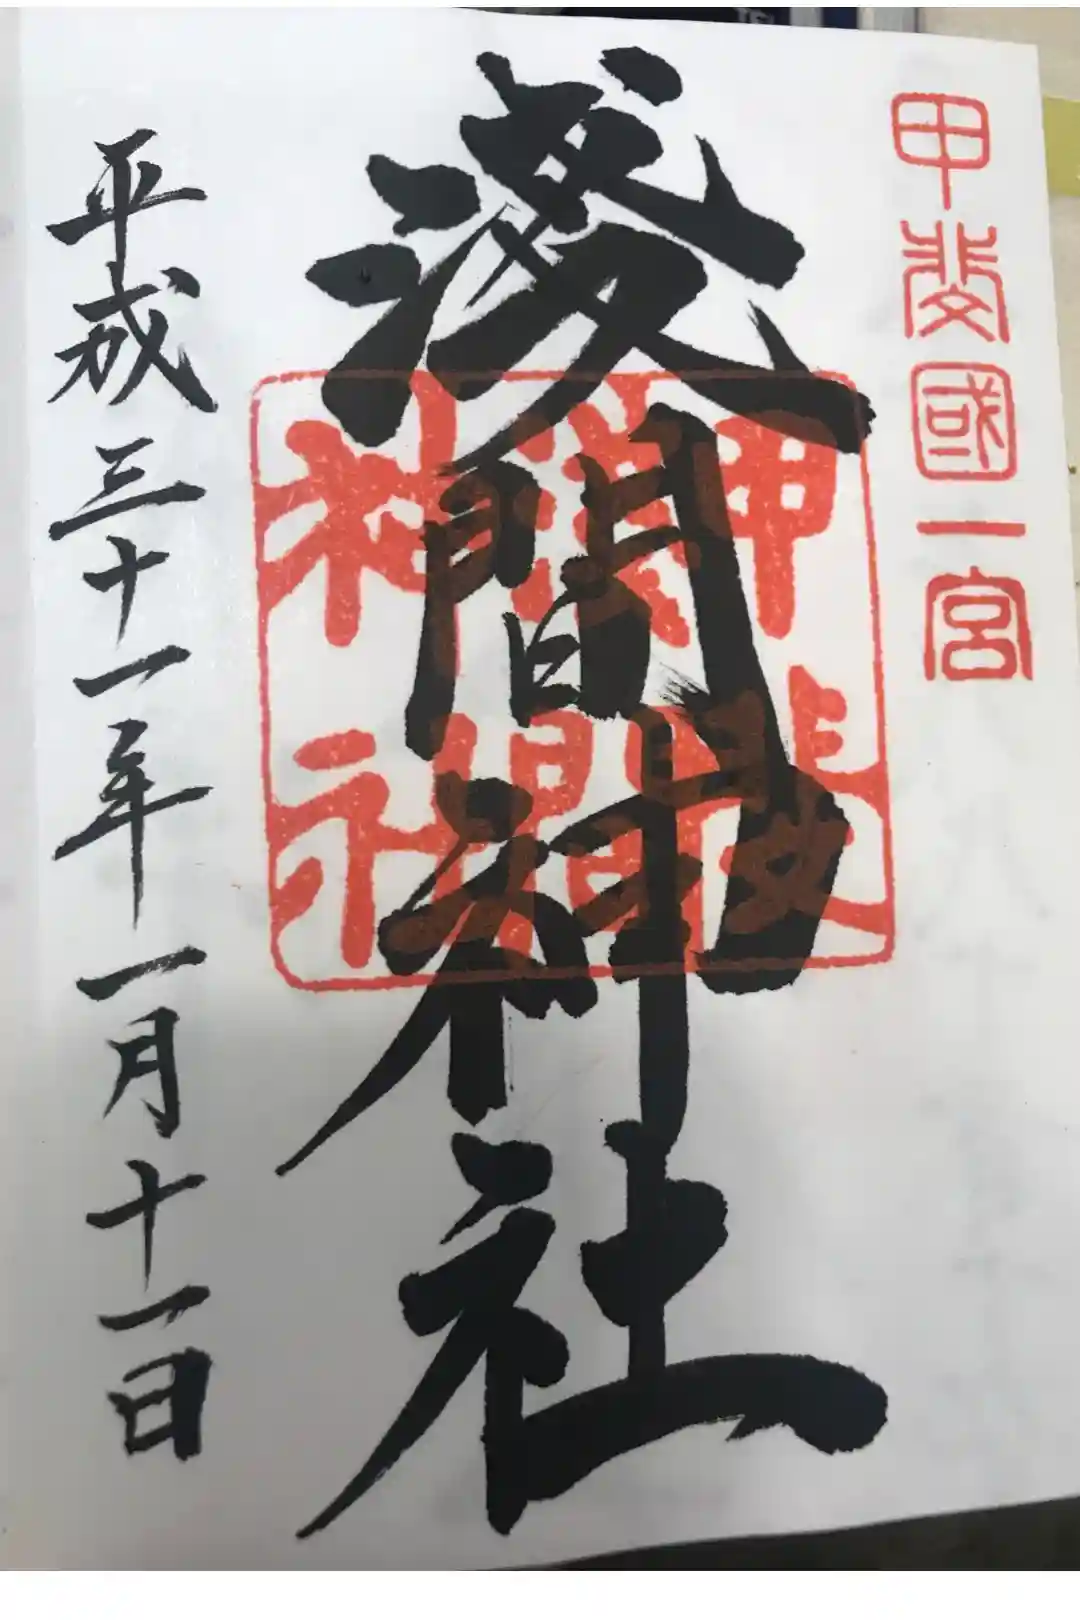 甲斐國一宮
淺間神社
甲斐
淺間
神社
平成三十一年一月十一日